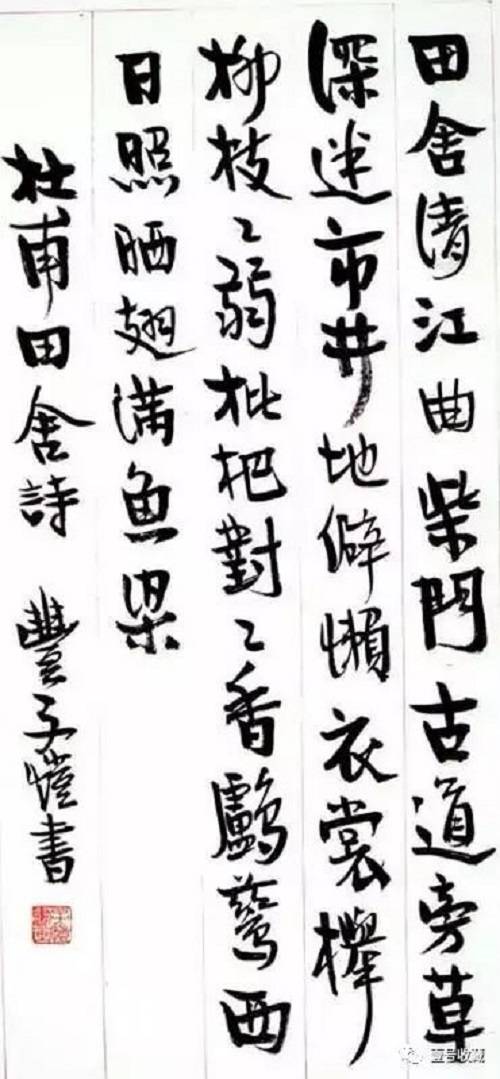 田舍清江曲柴門古道旁草
深迷市井地僻懶衣裳櫸
柳枝〻弱枇杷對〻香鸕鶿西
日照晒翅滿魚梁
杜甫田舍詩 豐子愷書
壹号收藏